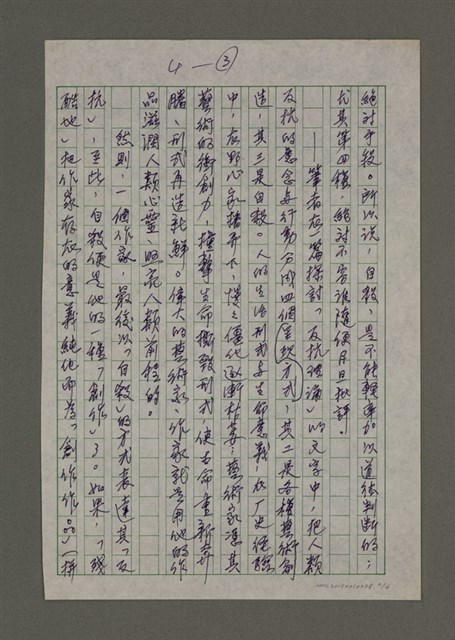 4—③
絕對手段。所以說，自殺，是不能輕率加以道德判斷的；
尤其第四種，絕對不容誰隨便月旦批評。
——筆者在一篇探討「反抗理論」的文字中，把人類
反抗的意念與行動分成四個呈現方式，其二是各種藝術創
造，其三是自殺。人的生活形式與生命意義，在歷史經驗
中，在野心家藉弄下，慢慢僵化逐漸枯萎；藝術家憑其
藝術的衝創力，撞擊生命撕毀形式，使古命重新奔
騰、形式再造新鮮。偉大的藝術家、作家就是用他的作
品滋潤人類心靈、照亮人類前程的。
然則，一個作家，最後以「自殺」的方式表達其「反
抗」，至此，自殺便是他的一種「創作」了。如果，「殘
酷地」把作家存在的意義純化而為「創作作品」一樣